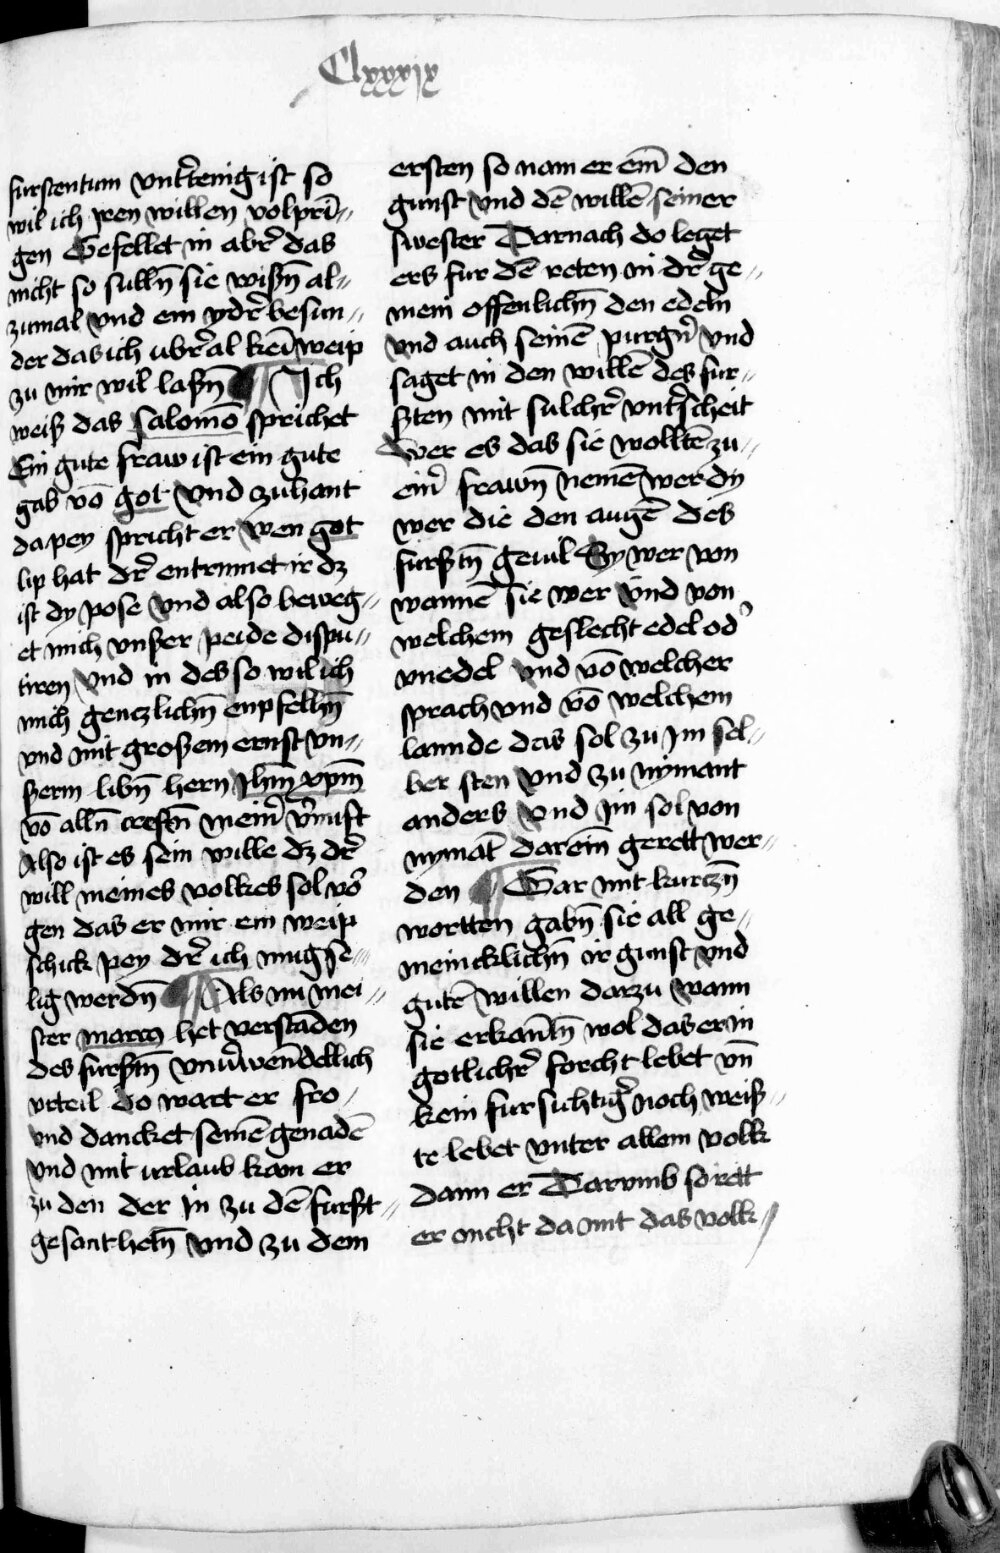 Clxxxix
furstentum vnt͛tenig ist so
wil ich jren willen volpri̅⸗
gen Gefellet in abr͛ das
nicht so sulln̅ sie wißn̅ al⸗
zumal vnd ein ydr͛ besun⸗
der das ich ubr͛al kei̅ weip
zu mir wil laßn̅ ¶ Ich
weiß das salomo̅ sprichet
Ein gute fraw ist ein gute
gab vo̅ got Vnd zuhant
dapey spricht er wen got
lip hat dr͛ entrinnet ir dz
ist dy pose Vnd also beweg⸗
et mich vnßer peide dispu⸗
tiren Vnd in des so wil ich
mich genczlichn̅ enpfelhn̅
vnd mit großem ernst vn⸗
ßerm libn̅ hern Jhm̅ xpm̅
vo̅ alln̅ creftn̅ meinr͛ v͛nuft
Also ist es sein wille dz dr͛
will meines volkes sol vo͛
gen das er mir ein weip
schick pey dr͛ ich mug se⸗
lig werdn̅ ¶ Als nu mei⸗
ster marco het verstanden
des furstn̅ vnuͤwendellich
vrteil do wart er fro
vnd dancket seine̅ genade̅
Vnd mit urlaub kam er
zu den der jn zu de̅ furst⸗
gesant hetn̅ Vnd zu dem
ersten so nam er ein̅ den
gunst Vnd de̅ wille̅ seiner
swester Darnach do leget
ers fur de̅ reten in dr͛ ge⸗
mein offenlichn̅ den edeln
Vnd auch seine̅ purgn͛ Vnd
saget in den wille̅ des fur⸗
sten mit sulchr͛ vnt͛scheit
Wer es das sie wollte̅ zu⸗
ein͛ frawn̅ neme̅ wer dy
wer die den auge̅ des
furstn̅ geuil Sy wer von
wanne̅ sie wer vnd von
welchem geslecht edel od͛
vnedel vnd vo̅ welcher
sprach vnd vo̅ welchem
lannde das sol zu jm sel⸗
ber sten Vnd zu nymant
anders Vnd jm sol von
nymat̅ darein̅ gerett wer⸗
den ¶ Gar mit kurczn̅
wortten gabn̅ sie all ge⸗
meincklichn̅ ir gunst vnd
gute̅ willen darzu Wann
sie erkan̅tn̅ wol das er in
gotlichr͛ forcht lebet vn̅
kein fursichtig͛ noch weiß⸗
te lebet vnter allem volk
dann er Darvmb so rett
er nicht da mit das volk